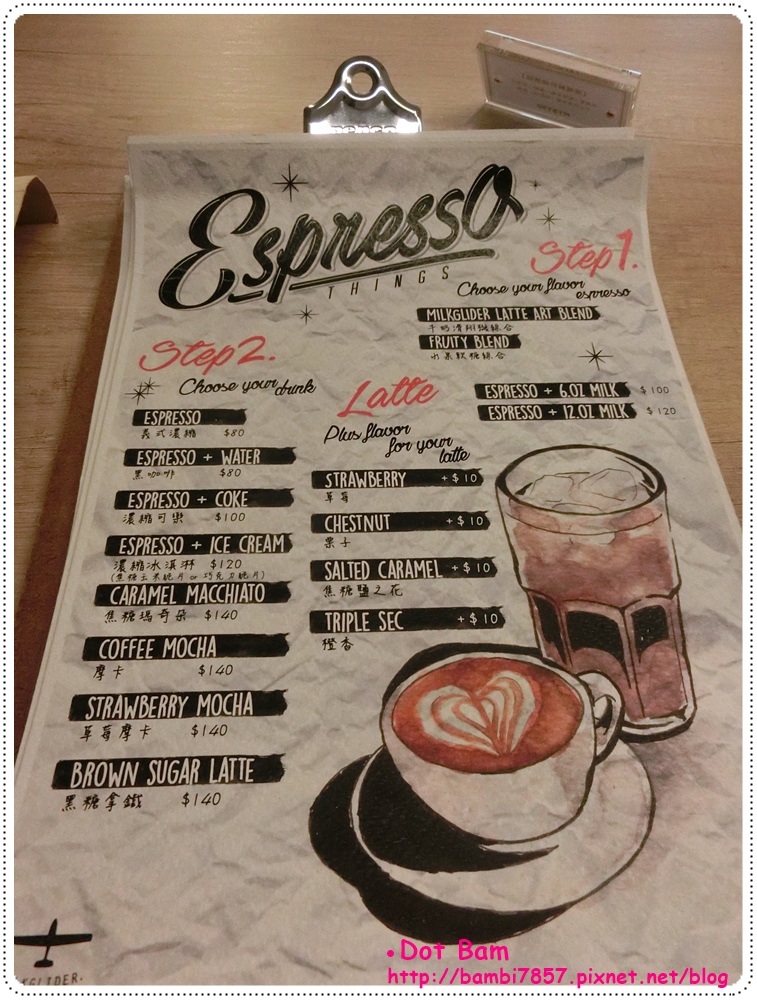 Espresso
THINGS
Step1.
Choose your flavor
espresso
MILKGLIDER LATTE ART BLEND
牛奶滑翔翼綜合
FRUITY BLEND
水果軟糖綜合
Step2.
Choose your drink
ESPRESSO
義式濃縮 $80
ESPRESSO + WATER
黑咖啡 $80
ESPRESSO + COKE
濃縮可樂 $100
ESPRESSO + ICE CREAM
濃縮冰淇淋 $120
(焦糖玉米脆片 or 巧克力脆片)
CARAMEL MACCHIATO
焦糖瑪奇朵 $140
COFFEE MOCHA
摩卡 $140
STRAWBERRY MOCHA
草莓摩卡 $140
BROWN SUGAR LATTE
黑糖拿鐵 $140
Latte
ESPRESSO + 6.OZ MILK $100
ESPRESSO + 12.OZ MILK $120
Plus flavor
for your
latte
STRAWBERRY +$10
草莓
CHESTNUT +$10
栗子
SALTED CARAMEL +$10
焦糖鹽之花
TRIPLE SEC +$10
橙香
GLIDER.
•Dot Bam
http://bambi7857.pixnet.net/blog